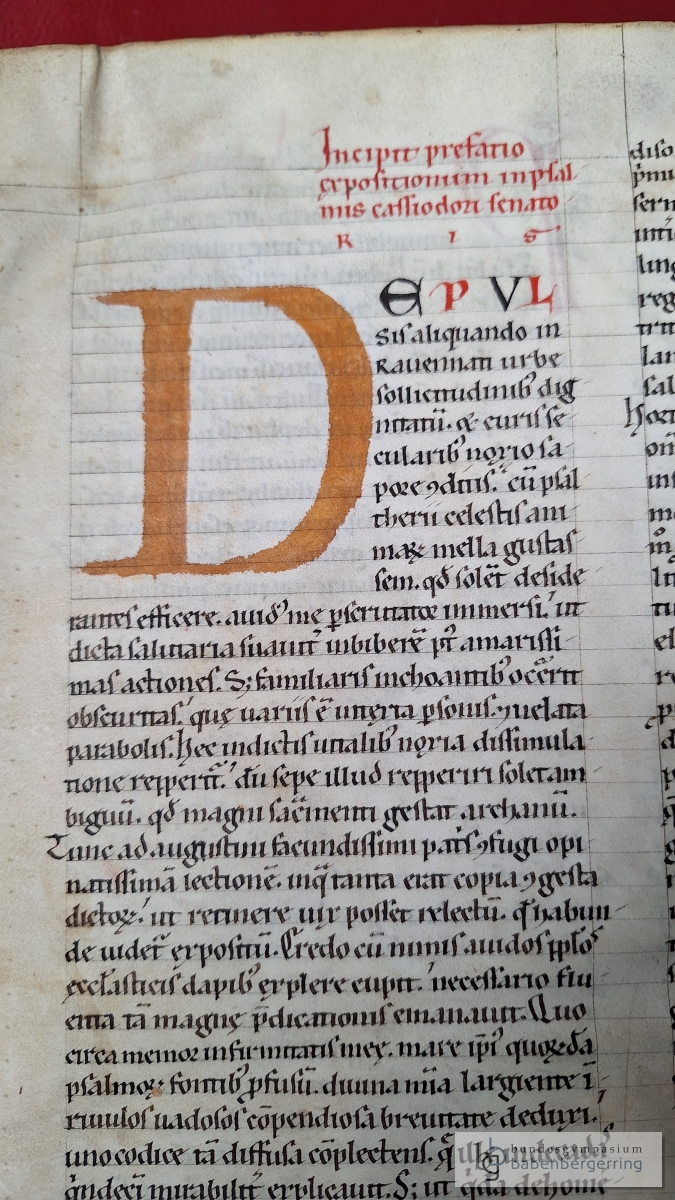 Incipit prefatio
expositionum in psal
mis cassiodori senato
R I S
DEPUL
sis aliquando in
Rauennati urbe
sollicitudinib; dig
nitatū. & curis se
cularib; noxio sa
pore ꝯditis. cū psal
therii celestis ani
maꝝ mella gustas
sem. qđ solēt deside
rantes efficere. auid me pscrutator immersi. ut
dicta salutaria suauit inbiberē p amarissi
mas actiones. S; familiaris inchoantib; occrit
obscuritas. quę uariis ē intexta psonis. ⁊ uelata
parabolis. Hec indictis uitalib; noxia dissimula
tione repperit. dū sepe illud repperiri solet am
biguū. qđ magni sacmenti gestat archanū.
Tunc ad augustini facundissimi patris ꝯfugi opi
natissimā lectionē. in q tanta erat copia ꝯgesta
dictoꝝ. ut retinere uix possēt relectū. qđ habun
de uidet expositū. Credo cū nimis auidos pplos
ęcclasticis dapib; explere cupit. necessario flu
enta tā magnę pdicationis emanauit. Quo
circa memor infirmitatis meę. mare ipi quorđa
psalmoꝝ fontib; pfusū. diuina mia largiente ī
riuulos uadosos cōpendiosa breuitate deduxi.
uno codice tā diffusa cōplectens. q
ꝗndecī mirabilit explicauit. S; ut qđa de home
bundesgymnasium
babenbergerring
diso
pmu
serm
ling
reg
lan
sal
Hoc
ins